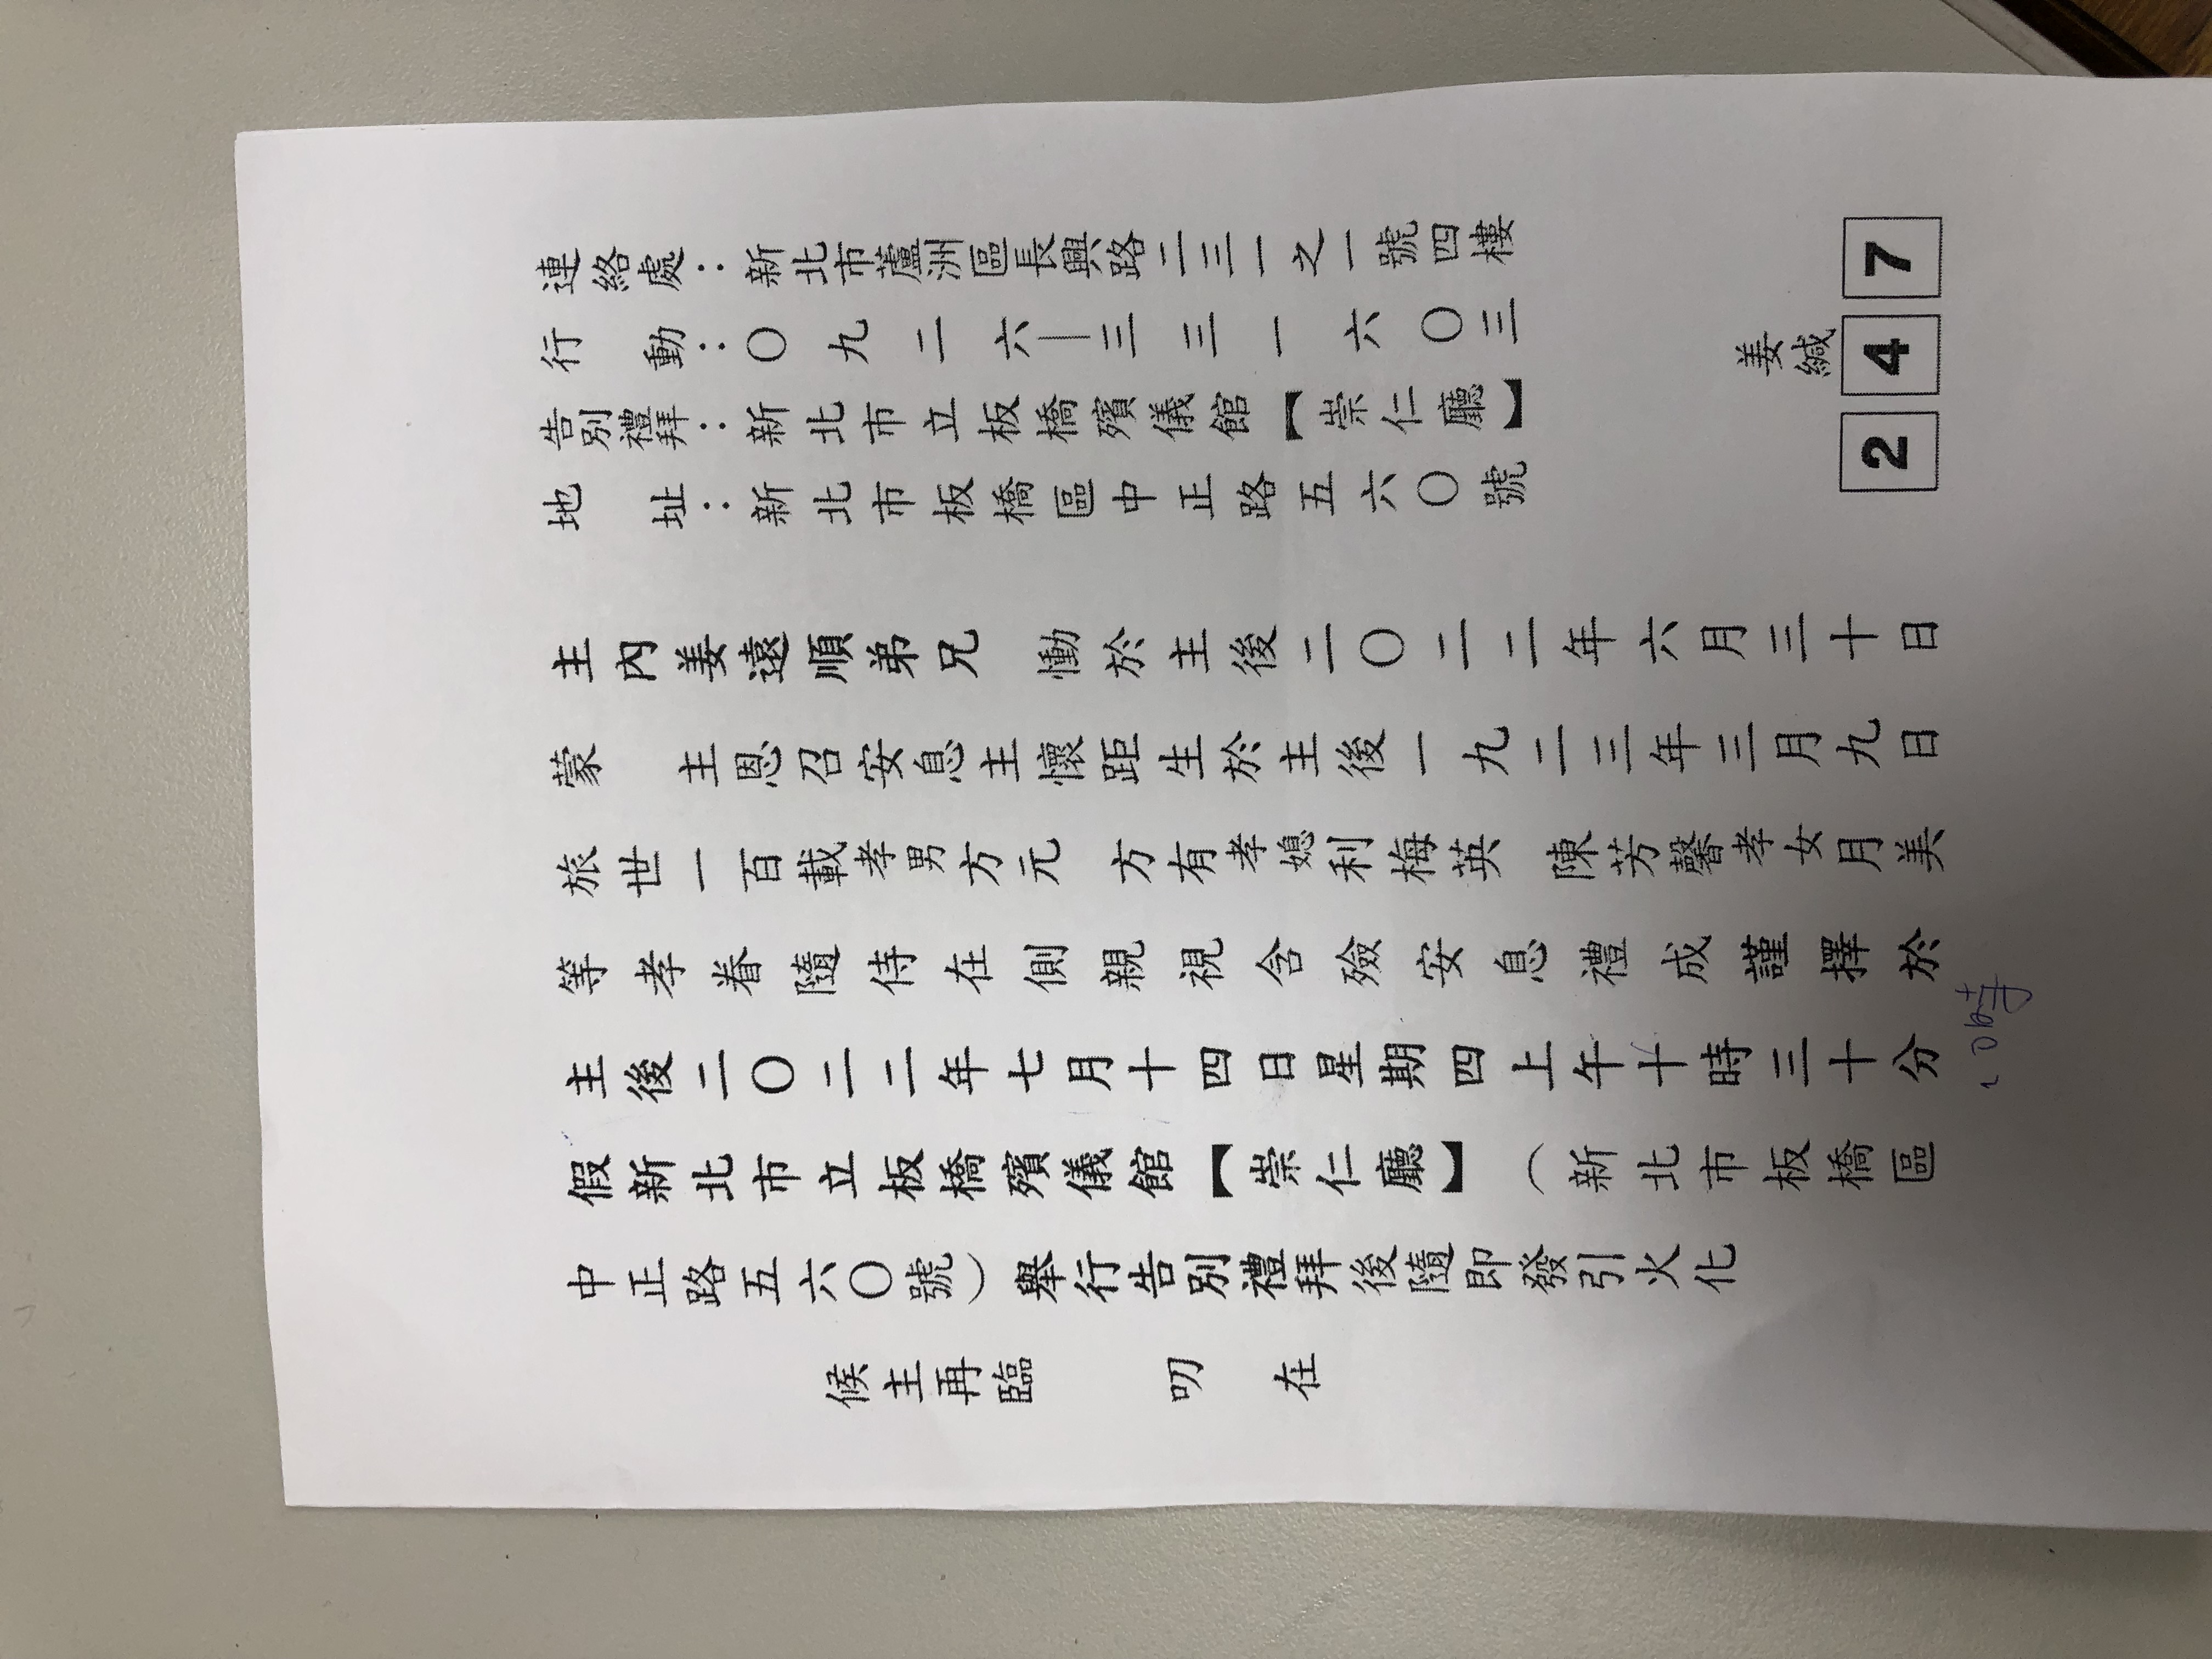 連絡處：新北市蘆洲區長興路二三一之一號四樓
行動：〇九二六—三三一六〇三
告別禮拜：新北市立板橋殯儀館【崇仁廳】
地址：新北市板橋區中正路五六〇號
姜緘
2 4 7
主內姜遠順弟兄 慟於主後二〇二二年六月三十日
蒙 主恩召安息主懷距生於主後一九二三年三月九日
旅世一百載孝男方元 方有孝媳利梅英 陳芳馨孝女月美
等孝眷隨侍在側親視含殮安息禮成謹擇於
主後二〇二二年七月十四日星期四上午十時三十分
假新北市立板橋殯儀館【崇仁廳】（新北市板橋區
中正路五六〇號）舉行告別禮拜後隨即發引火化
候主再臨 叨 在